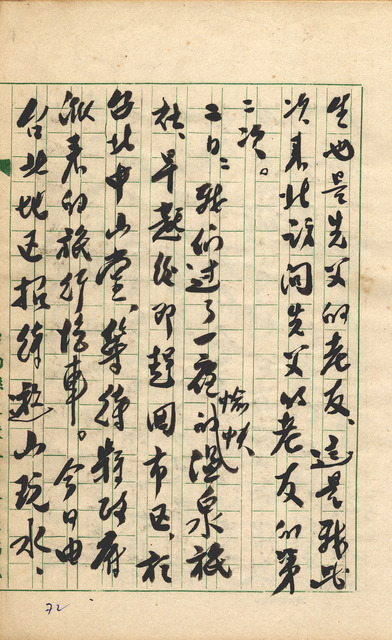 生也是先父的老友、這是我此
次來北訪問先父的老友的第
二次。
二日:我們過了一夜愉快的溫泉旅
社、早起後即趕回市區、於
台北中山堂、等待縣政府
派來的旅行轎車。今日由
台北地區招待遊山玩水、
72